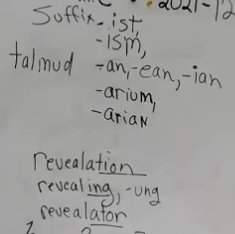 2021-12
Suffix-ist,
-ism,
talmud -an,-ean,-ian
-arium,
-arian
revealation
revealing, -ung
revealator